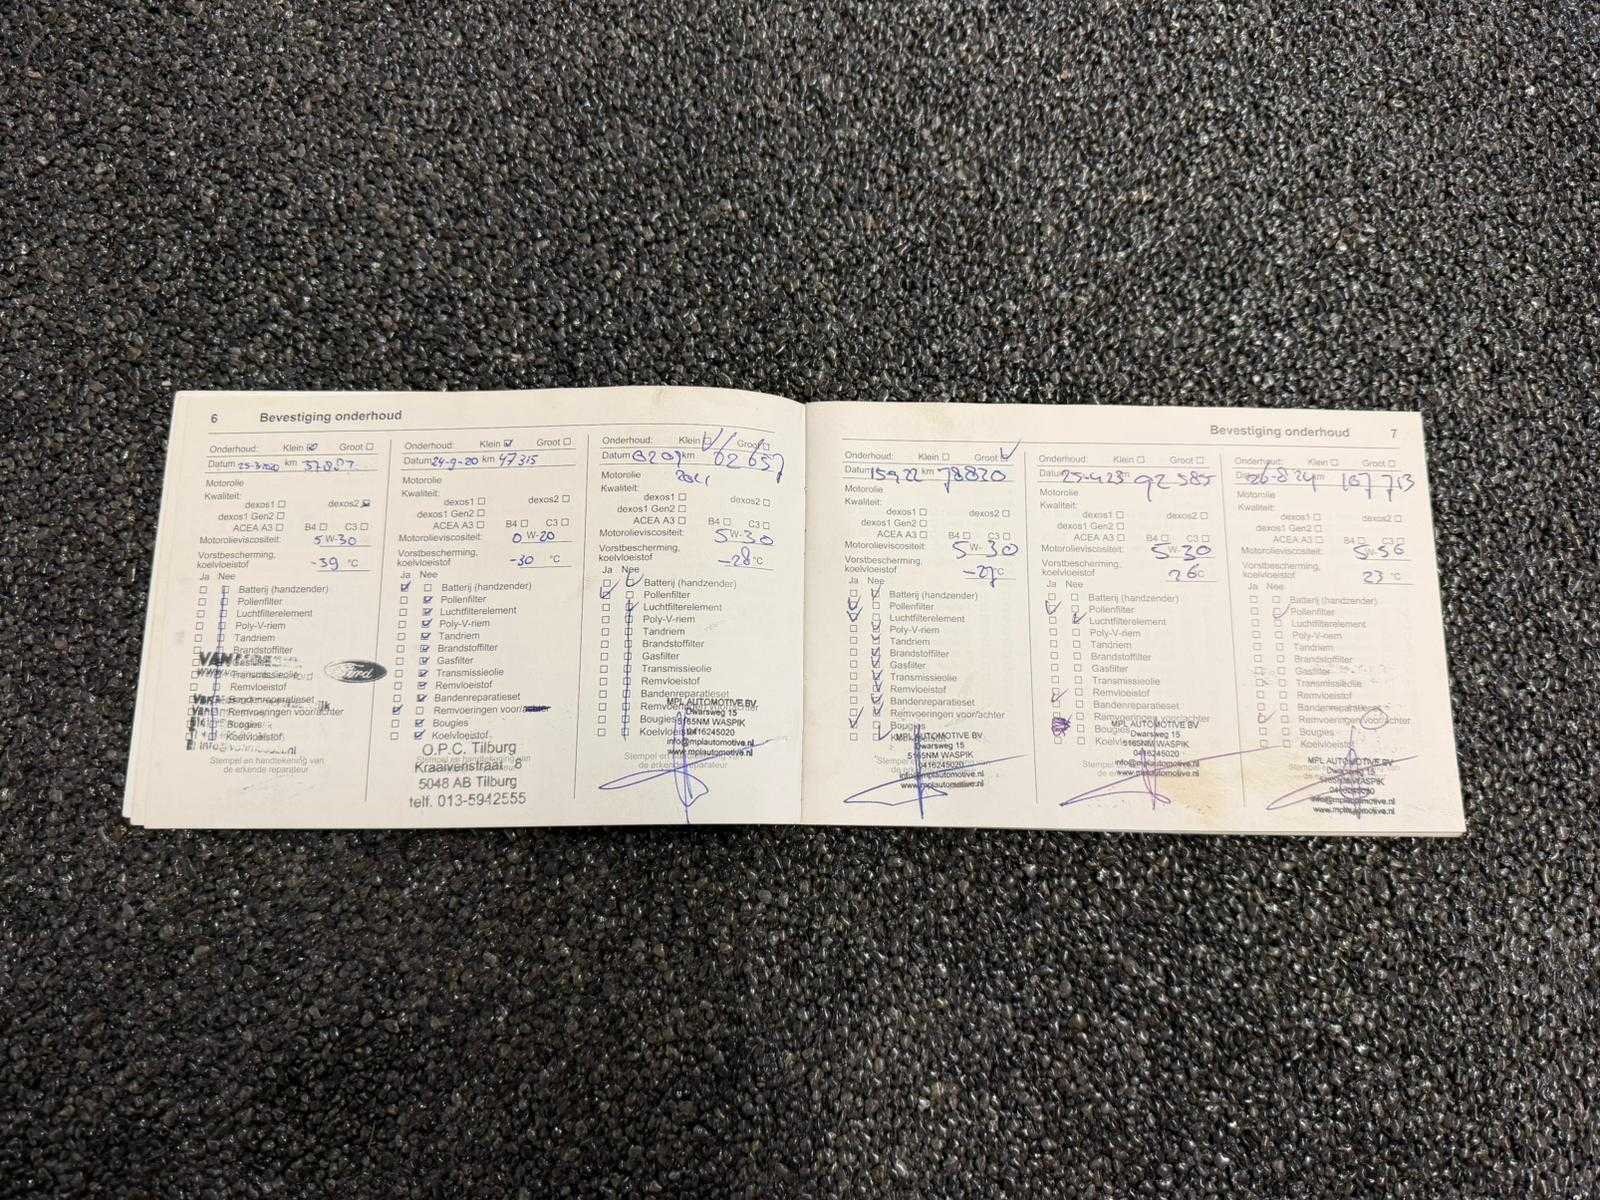 6 Bevestiging onderhoud
Onderhoud: Klein Groot
Datum 25-3-2020 km 37887
Motorolie
Kwaliteit:
dexos1 dexos2
dexos1 Gen2
ACEA A3 B4 C3
Motorolieviscositeit: 5W-30
Vorstbescherming,
koelvloeistof -39 °C
Ja Nee
Batterij (handzender)
Pollenfilter
Luchtfilterelement
Poly-V-riem
Tandriem
Brandstoffilter
Transmissieolie
Ford
Remvloeistof
Bandenreparatieset
Remvoeringen voor/achter
Bougies
Koelvloeistof
Stempel en handtekening van
de erkende reparateur
Onderhoud: Klein Groot
Datum 24-9-20 km 47315
Motorolie
Kwaliteit:
dexos1 dexos2
dexos1 Gen2
ACEA A3 B4 C3
Motorolieviscositeit: 0W-20
Vorstbescherming,
koelvloeistof -30 °C
Ja Nee
Batterij (handzender)
Pollenfilter
Luchtfilterelement
Poly-V-riem
Tandriem
Brandstoffilter
Gasfilter
Transmissieolie
Remvloeistof
Bandenreparatieset
Remvoeringen voor/achter
Bougies
Koelvloeistof
O.P.C. Tilburg
Kraaivenstraat 8
5048 AB Tilburg
telf. 013-5942555
Onderhoud: Klein Groot
Datum km 62657
2021
Motorolie
Kwaliteit:
dexos1 dexos2
dexos1 Gen2
ACEA A3 B4 C3
Motorolieviscositeit: 5W-30
Vorstbescherming,
koelvloeistof -28 °C
Ja Nee
Batterij (handzender)
Pollenfilter
Luchtfilterelement
Poly-V-riem
Tandriem
Brandstoffilter
Gasfilter
Transmissieolie
Remvloeistof
Bandenreparatieset
Remvoeringen voor/achter
Bougies
Koelvloeistof
MPL AUTOMOTIVE BV
Dwarsweg 15
5165NM WASPIK
0416245020
info@mplautomotive.nl
www.mplautomotive.nl
Bevestiging onderhoud 7
Onderhoud: Klein Groot
Datum 15 9 22 km 78820
Motorolie
Kwaliteit:
dexos1 dexos2
dexos1 Gen2
ACEA A3 B4 C3
Motorolieviscositeit: 5W-30
Vorstbescherming,
koelvloeistof -27 °C
Ja Nee
Batterij (handzender)
Pollenfilter
Luchtfilterelement
Poly-V-riem
Tandriem
Brandstoffilter
Gasfilter
Transmissieolie
Remvloeistof
Bandenreparatieset
Remvoeringen voor/achter
Bougies
MPL AUTOMOTIVE BV
Dwarsweg 15
5165NM WASPIK
0416245020
info@mplautomotive.nl
www.mplautomotive.nl
Onderhoud: Klein Groot
25-4-23 92585
Motorolie
Kwaliteit:
dexos1 dexos2
dexos1 Gen2
ACEA A3 B4 C3
Motorolieviscositeit: 5W-30
Vorstbescherming,
koelvloeistof 26 °C
Ja Nee
Batterij (handzender)
Pollenfilter
Luchtfilterelement
Poly-V-riem
Tandriem
Brandstoffilter
Gasfilter
Transmissieolie
Remvloeistof
Bandenreparatieset
Remvoeringen voor/achter
Bougies
MPL AUTOMOTIVE BV
Dwarsweg 15
5165NM WASPIK
0416245020
info@mplautomotive.nl
www.mplautomotive.nl
Onderhoud: Klein Groot
26-8-24 107713
Motorolie
Kwaliteit:
dexos1 dexos2
dexos1 Gen2
ACEA A3 B4 C3
Motorolieviscositeit:
Vorstbescherming,
koelvloeistof 23 °C
Ja Nee
Batterij (handzender)
Pollenfilter
Luchtfilterelement
Poly-V-riem
Tandriem
Brandstoffilter
Gasfilter
Transmissieolie
Remvloeistof
Bandenreparatieset
Remvoeringen voor/achter
Bougies
Koelvloeistof
MPL AUTOMOTIVE BV
Dwarsweg 15
5165NM WASPIK
0416245020
info@mplautomotive.nl
www.mplautomotive.nl